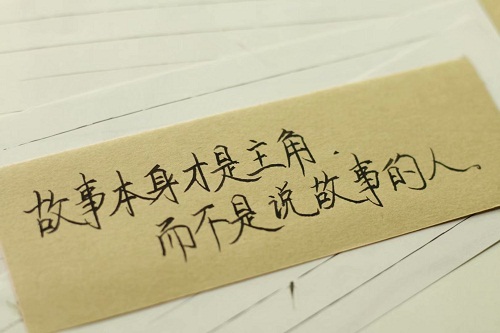 故事本身才是主角.
而不是说故事的人.